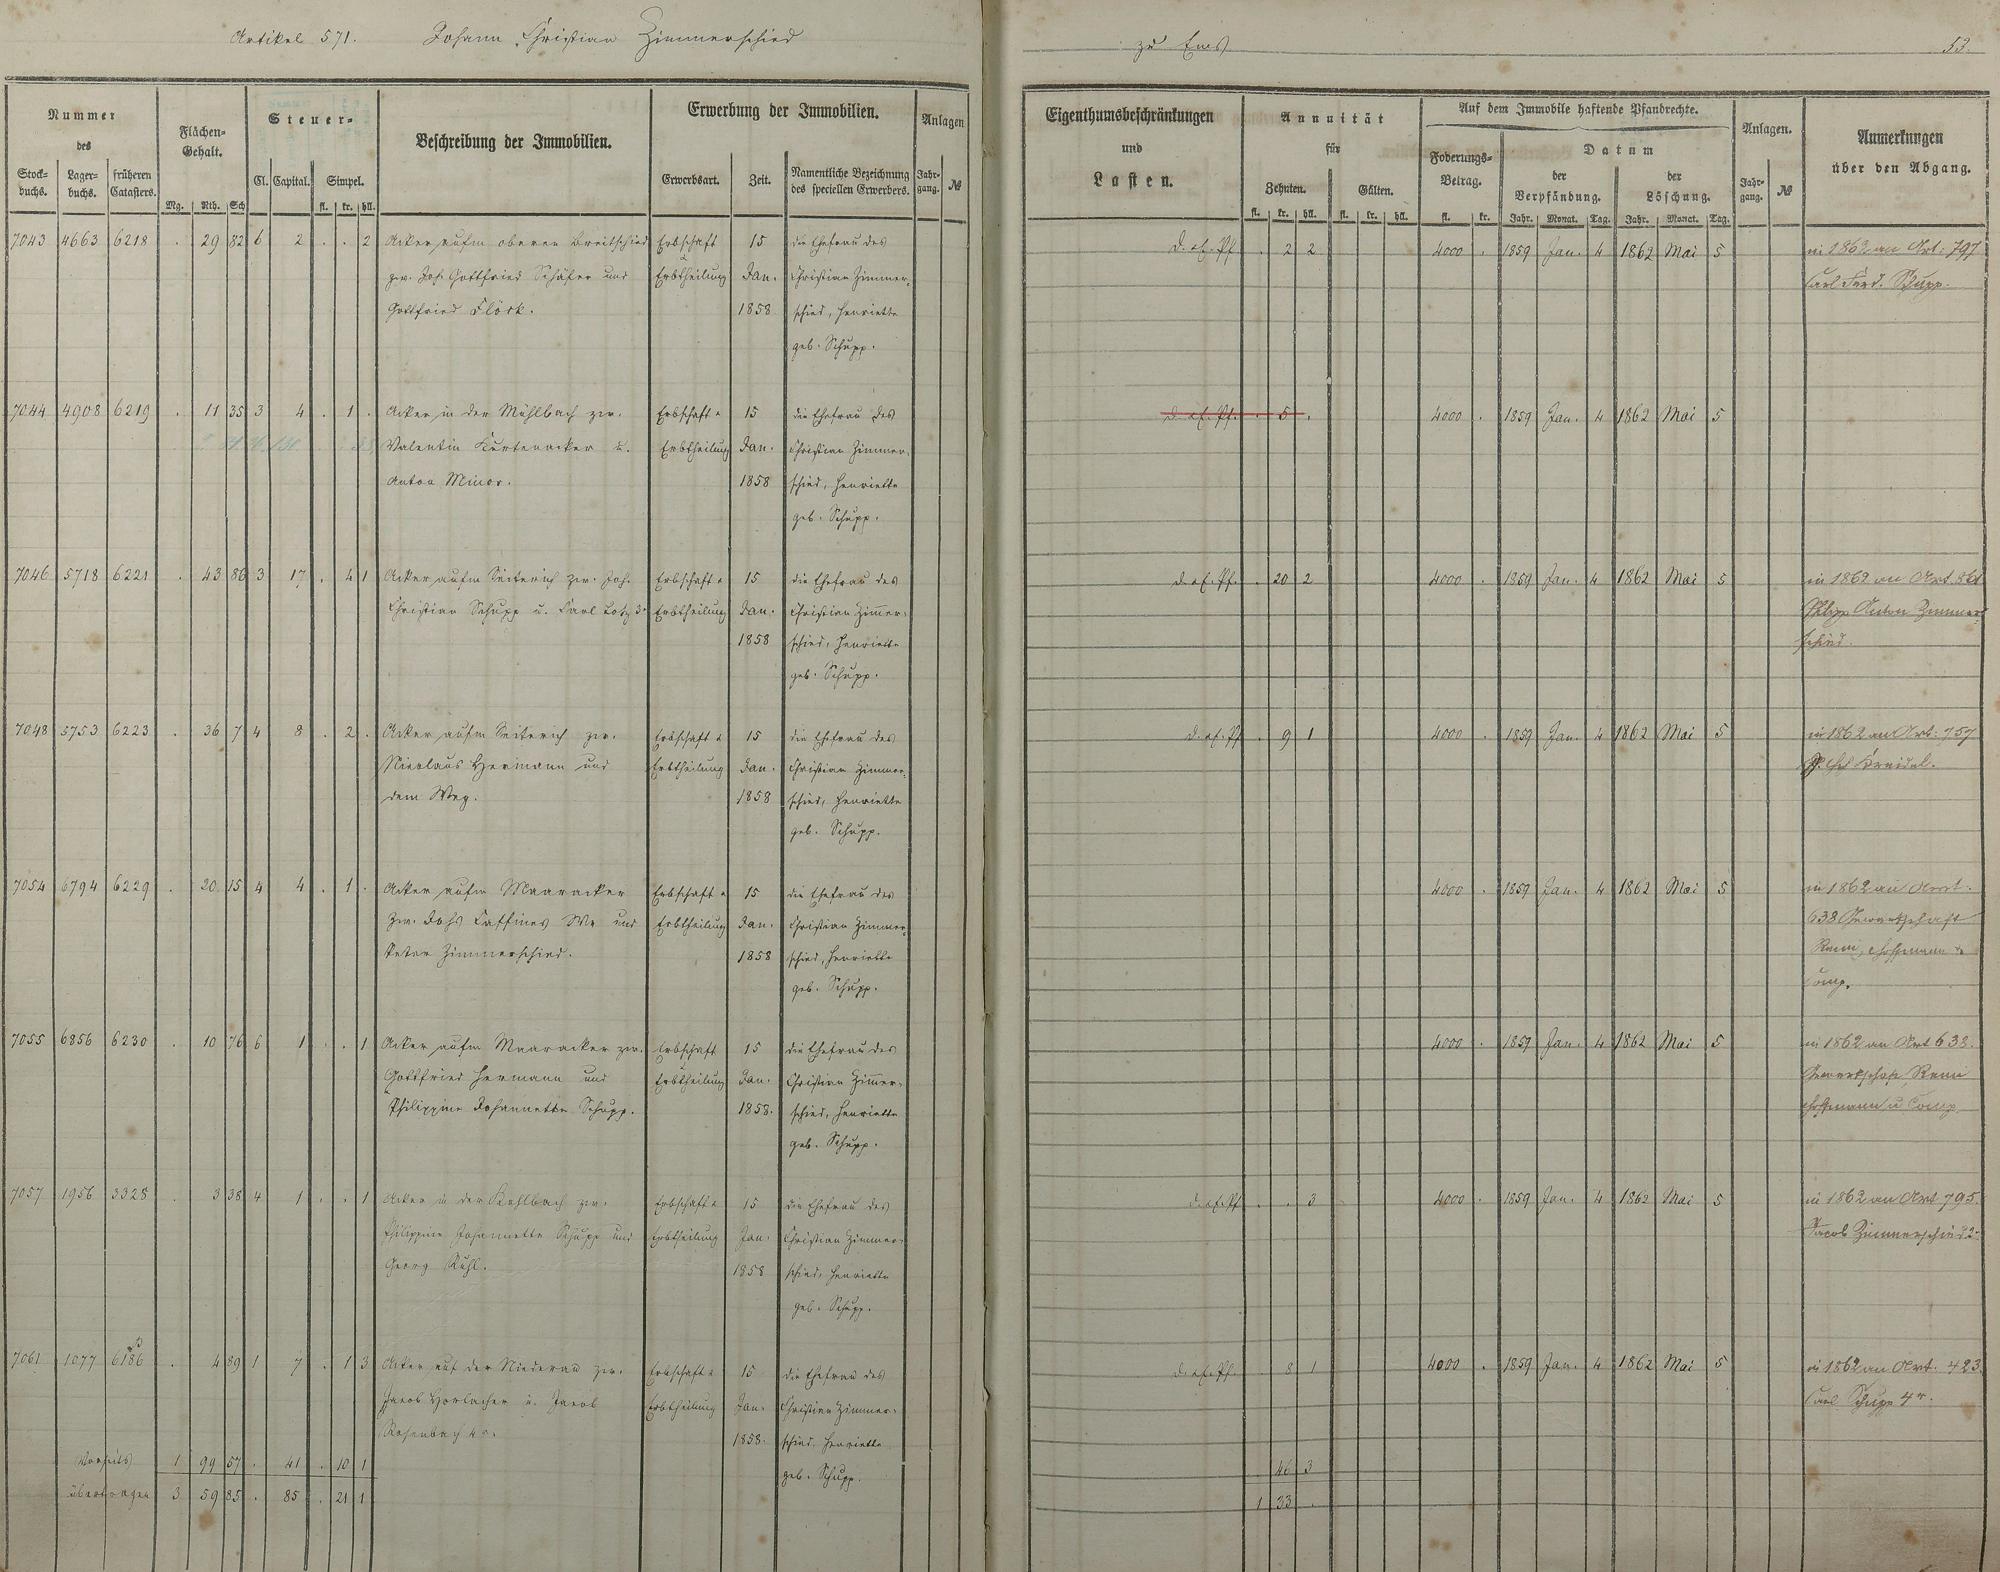 Artikel 571. Johann Christian Zimmerschied
zu Ems 53.
Nummer des
Stock-buchs. Lager-buchs. früheren Catasters.
Flächen-Gehalt.
Mg. Rth. Sch
Steuer-
Cl. Capital. Simpel.
fl. kr. hll.
Beschreibung der Immobilien.
Erwerbung der Immobilien.
Erwerbsart. Zeit. Namentliche Bezeichnung des speciellen Erwerbers.
Anlagen
Jahr-gang. №
Eigenthumsbeschränkungen
und
Lasten.
Annuität
für
Zehnten. Gülten.
fl. kr. hll. fl. kr. hll.
Auf dem Immobile haftende Pfandrechte.
Foderungs-Betrag.
fl. kr.
Datum
der Verpfändung. der Löschung.
Jahr. Monat. Tag. Jahr. Monat. Tag.
Anlagen.
Jahr-gang. №
Anmerkungen
über den Abgang.
7043 4663 6218 . 29 82 6 2 . . 2 Acker aufm oberen Breitschied Erbschaft 15 die Ehefrau des
zw. Joh. Gottfried Schäfer und Erbtheilung Jan. Christian Zimmer-
Gottfried Flöck. 1858 schied, Henriette
geb. Schupp.
. 2 2 4000 . 1859 Jan. 4 1862 Mai 5 in 1862 an Art: 797
Carl Ferd. Schupp.
7044 4908 6219 . 11 35 3 4 . 1 . Acker in der Mühlbach zw. Erbschaft u 15 die Ehefrau des
Valentin Kurtenacker u. Erbtheilung Jan. Christian Zimmer-
Anton Minor. 1858 schied, Henriette
geb. Schupp.
. 5 . 4000 . 1859 Jan. 4 1862 Mai 5
7046 5718 6221 . 43 86 3 17 . 4 1 Acker aufm Seiterich zw. Joh. Erbschaft u 15 die Ehefrau des
Christian Schupp u. Carl Lotz 3r Erbtheilung Jan. Christian Zimmer-
1858 schied, Henriette
geb. Schupp.
. 20 2 4000 . 1859 Jan. 4 1862 Mai 5 in 1862 an Art.
Philipp Anton Zimmer-
schied.
7048 5753 6223 . 36 7 4 8 . 2 . Acker aufm Seiterich zw. Erbschaft u 15 die Ehefrau des
Nicolaus Hermann und Erbtheilung Jan. Christian Zimmer-
dem Weg. 1858 schied, Henriette
geb. Schupp.
. 9 1 4000 . 1859 Jan. 4 1862 Mai 5 in 1862 an Art: 757
Kreidel.
7054 6794 6229 . 20 15 4 4 . 1 . Acker aufm Maaracker Erbschaft u 15 die Ehefrau des
zw. Johs Caffines We und Erbtheilung Jan. Christian Zimmer-
Peter Zimmerschied. 1858 schied, Henriette
geb. Schupp.
4000 . 1859 Jan. 4 1862 Mai 5 in 1862 an Art.
638 Gewerkschaft
Remi, Hoffmann &
Comp.
7055 6856 6230 . 10 76 6 1 . . 1 Acker aufm Maaracker zw. Erbschaft 15 die Ehefrau des
Gottfried Hermann und Erbtheilung Jan. Christian Zimmer-
Philippine Johannette Schupp. 1858. schied, Henriette
geb. Schupp.
4000 . 1859 Jan. 4 1862 Mai 5 in 1862 an Art 638.
Gewerkschaft Remi
Hoffmann u Comp.
7057 1956 3328 . 3 38 4 1 . . 1 Acker in der Kehlbach zw. Erbschaft u 15 die Ehefrau des
Philippine Johannette Schupp und Erbtheilung Jan. Christian Zimmer-
Georg Kuhl. 1858 schied, Henriette
geb. Schupp.
. . 3 4000 . 1859 Jan. 4 1862 Mai 5 in 1862 an Art 795.
Jacob Zimmerschied 2r
7061 1077 6186 . 4 89 1 7 . 1 3 Acker auf der Niederau zw. Erbschaft u 15 die Ehefrau des
Jacob Horlacher u. Jacob Erbtheilung Jan. Christian Zimmer-
Rosenbach 4r. 1858. schied, Henriette
geb. Schupp.
. 8 1 4000 . 1859 Jan. 4 1862 Mai 5 in 1862 an Art. 423.
Carl Schupp 4r.
Vorseits 1 99 57 . 41 . 10 1 . 46 3
übertragen 3 59 85 . 85 . 21 1 1 33 .